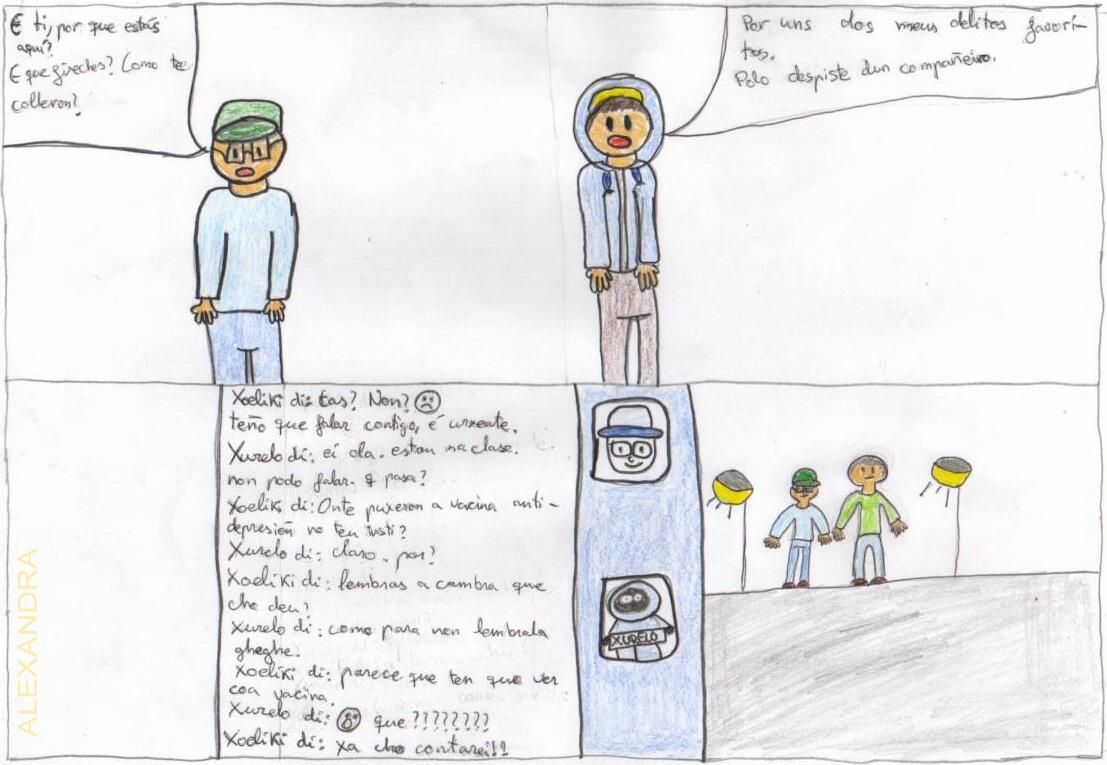 E ti, por que estás
aquí?
E que fixeches? Como te
colleron?
Por uns dos meus delitos favori-
tos.
Polo despiste dun compañeiro.
Xoeliki di: Estas? Non?
teño que falar contigo, é urxente.
Xurelo di: ei ola. estou na clase.
non podo falar. q pasa?
Xoeliki di: Onte puxeron a vacina anti-
depresión no teu insti?
Xurelo di: claro. por?
Xoeliki di: lembras a cambra que
che deu?
Xurelo di: como para non lembrala
gheghe.
Xoeliki di: parece que ten que ver
coa vacina.
Xurelo di: que ????????
Xoeliki di: xa cho contarei!!
XURELO
ALEXANDRA